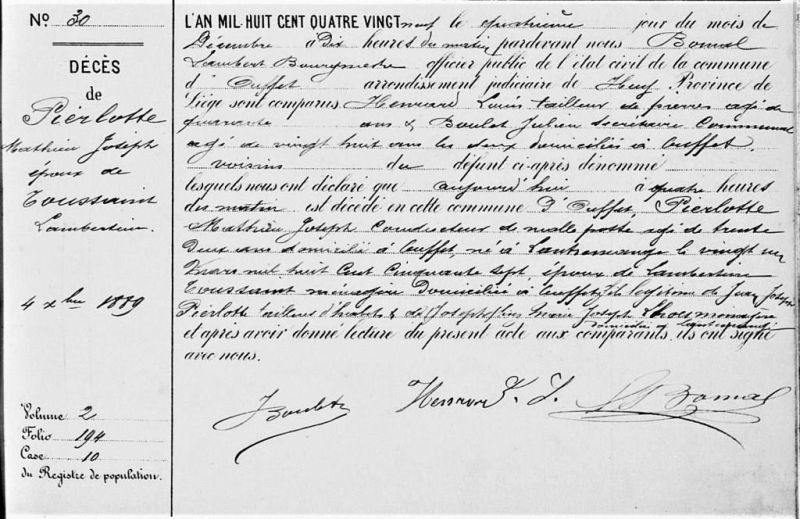 N° 30
DÉCÈS
de
Pierlotte
Mathieu Joseph
époux de
Toussaint
Lambertine
4 xbre 1889
Volume 2
Folio 194
Case 10
du Registre de population.
L'AN MIL HUIT CENT QUATRE VINGT neuf le quatrième jour du mois de
Décembre à Dix heures du matin pardevant nous Bomal
Lambert Bourgmestre officier public de l'état civil de la commune
d'Ouffet arrondissement judiciaire de Huy Province de
Liège sont comparus Henrard Louis tailleur de pierres agé de
quarante ans & Boulet Julien Secrétaire Communal
agé de vingt huit ans les deux domiciliés à Ouffet.
voisins du défunt ci-après dénommé
lesquels nous ont déclaré que aujourd'hui à quatre heures
du matin est décédé en cette commune d'Ouffet, Pierlotte
Mathieu Joseph Conducteur de malle poste agé de trente
deux ans domicilié à Ouffet, né à le vingt un
Mars mil huit Cent Cinquante Sept, époux de Lambertine
Toussaint ménagère Domiciliée à Ouffet, fils légitime de Jean Joseph
Pierlotte tailleur d'habits & de Marie Joseph
domiciliés à
et après avoir donné lecture du présent acte aux comparants, ils ont signé
avec nous.
J Boulet
Henrard L. J.
L Bomal